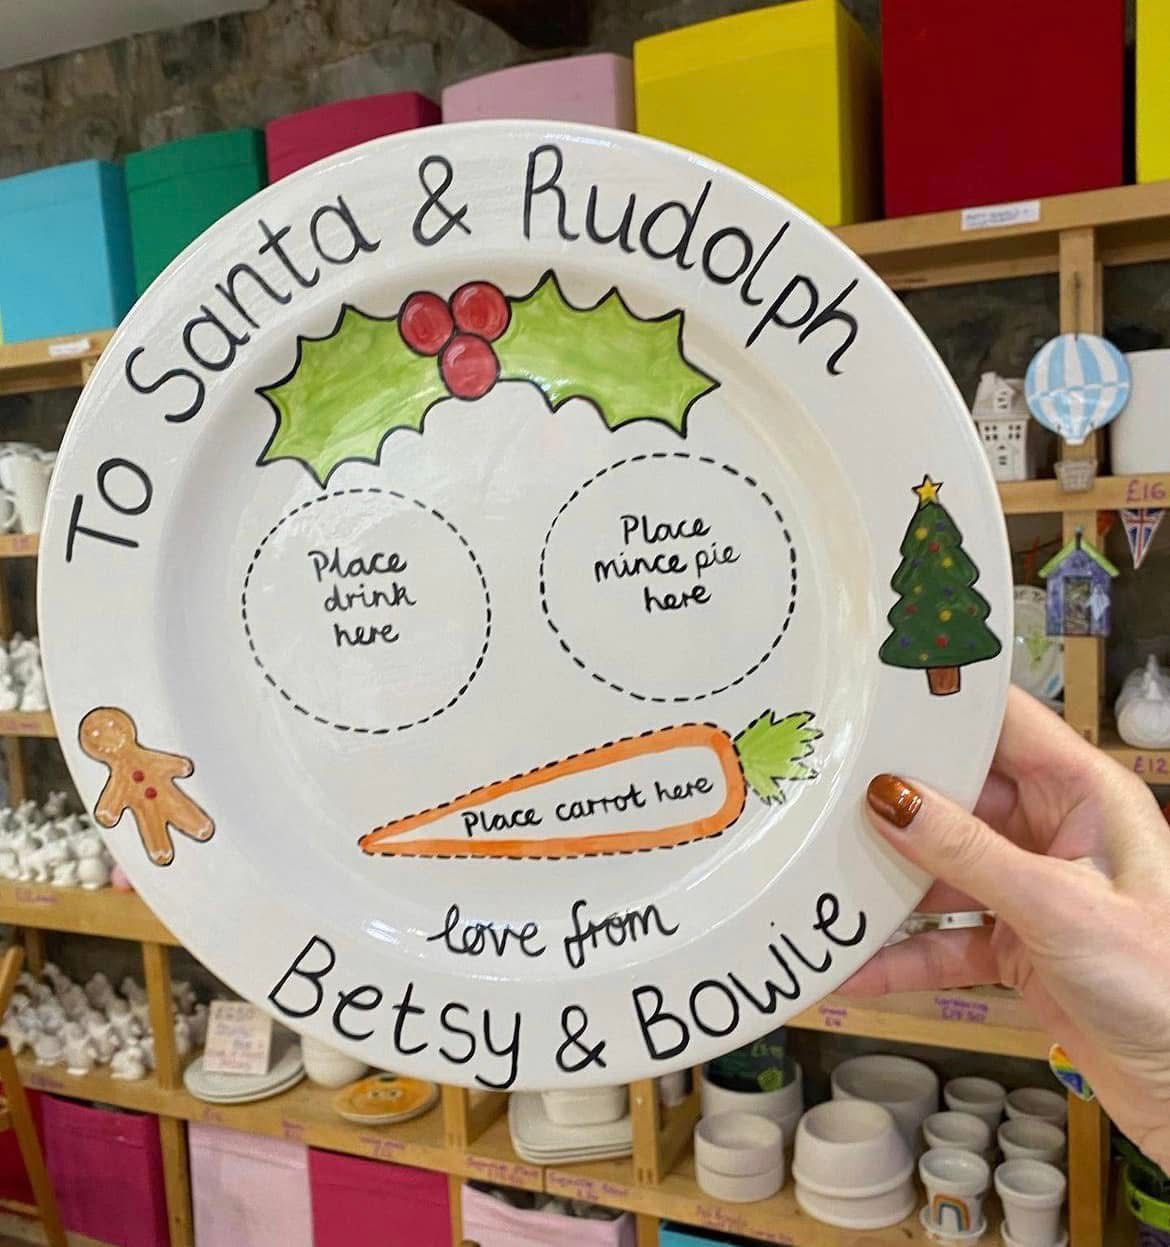 To Santa & Rudolph
Place
drink
here
Place
mince pie
here
Place carrot here
love from
Betsy & Bowie
£16
£12